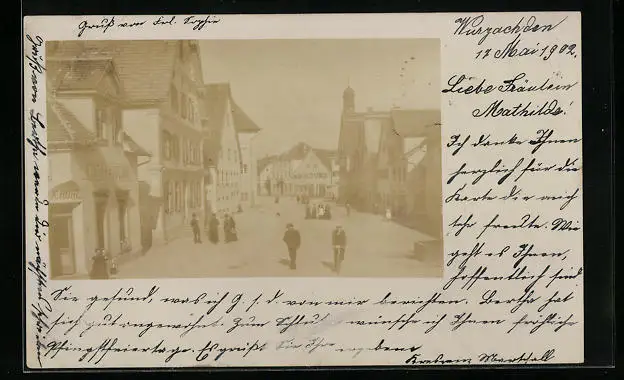 Gruß von Frl. Sophie
Wurzach den
12 Mai 1902.
Liebe Fräulein
Mathilde!
Ich danke Ihnen
herzlich für die
Karte die mich
sehr freute. Wie
geht es Ihnen,
hoffentlich sind
Sie gesund, was ich G. s. d. von mir berichten. Bertha hat
sich gut angewöhnt. Zum Schluß wünsche ich Ihnen fröhliche
Pfingstfeiertage. Es grüßt Sie Ihre
Gruß von